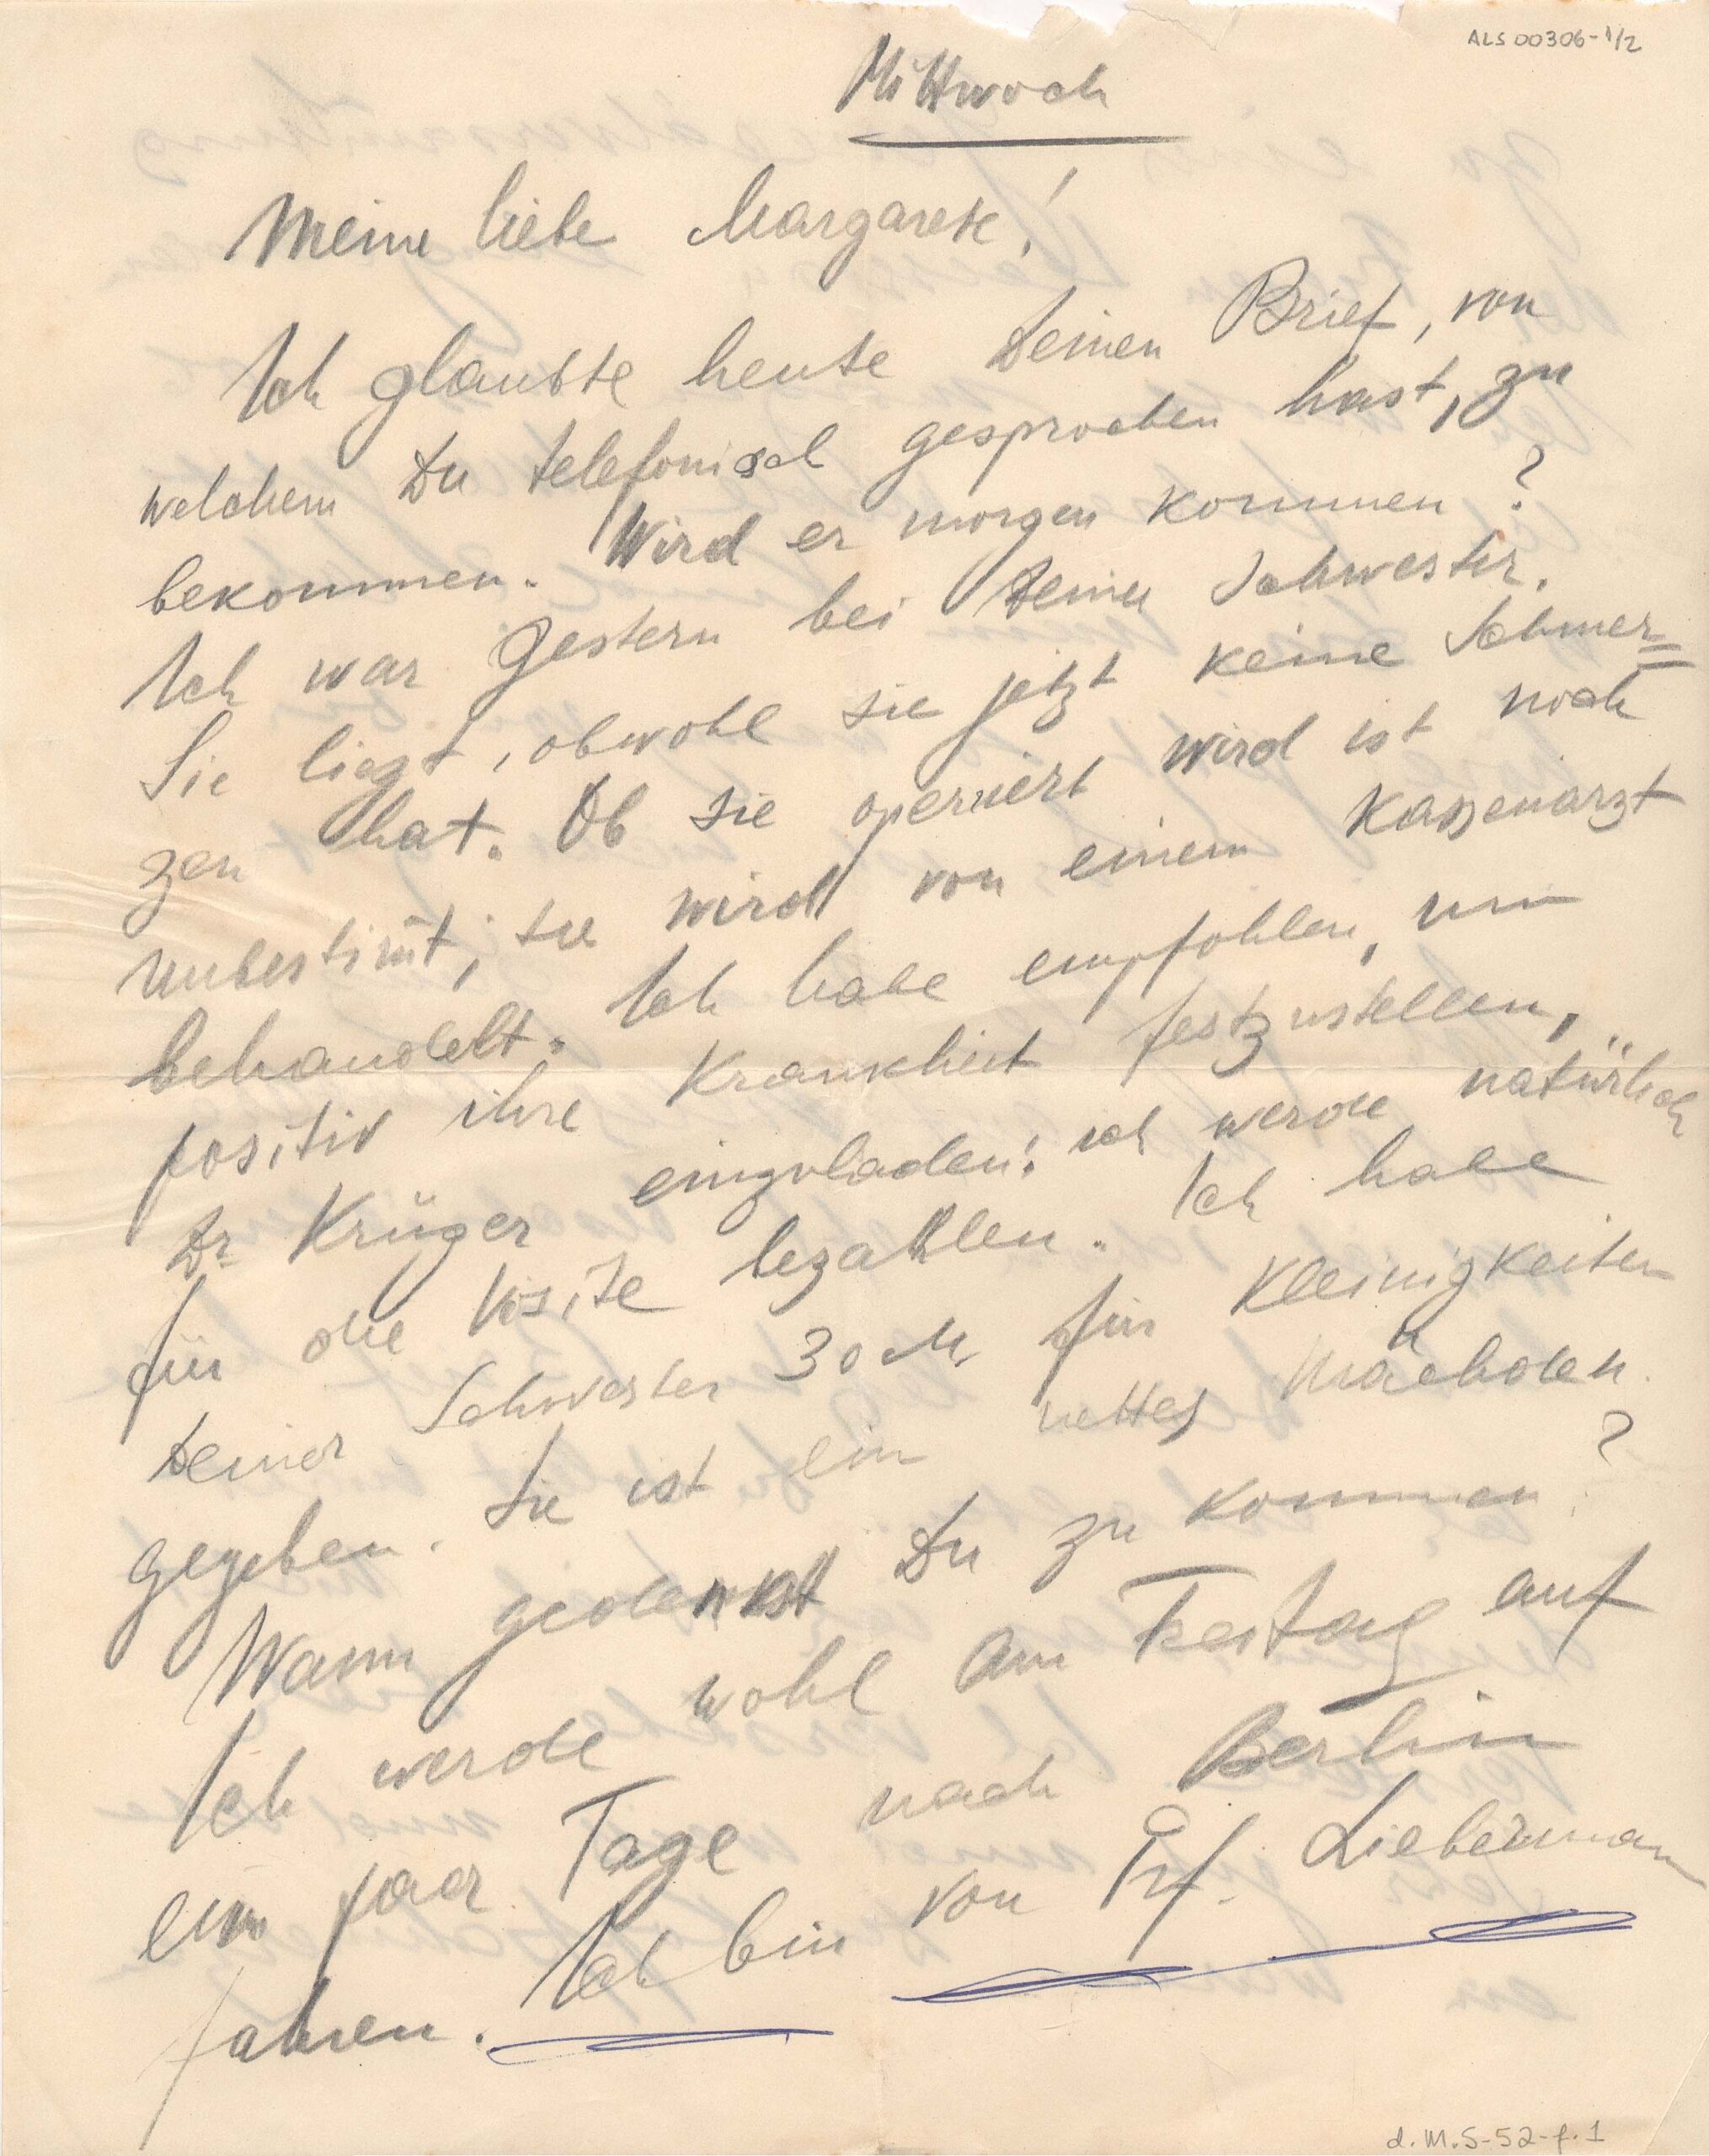 ALS 00306-1/2
Mittwoch
Meine liebe Margarete!
Ich glaubte heute Deinen Brief, von
welchem Du telefonisch gesprochen hast, zu
bekommen. Wird er morgen kommen?
Ich war gestern bei Deiner Schwester.
Sie liegt, obwohl sie jetzt keine Schmer=
zen hat. Ob sie operiert wird ist noch
unbestim̄t; sie wird von einem Kassenarzt
behandelt. Ich habe empfohlen, um
positiv ihre Krankheit festzustellen,
Dr Krüger einzuladen; ich werde natürlich
für die Visite bezahlen. Ich habe
Deiner Schwester 30 M. für Kleinigkeiten
gegeben. Sie ist ein nettes Mädchen.
Wann gedenkst Du zu kommen?
Ich werde wohl am Freitag auf
ein paar Tage nach Berlin
fahren. Ich bin von Prf. Liebermann
d.M.S-52-f.1